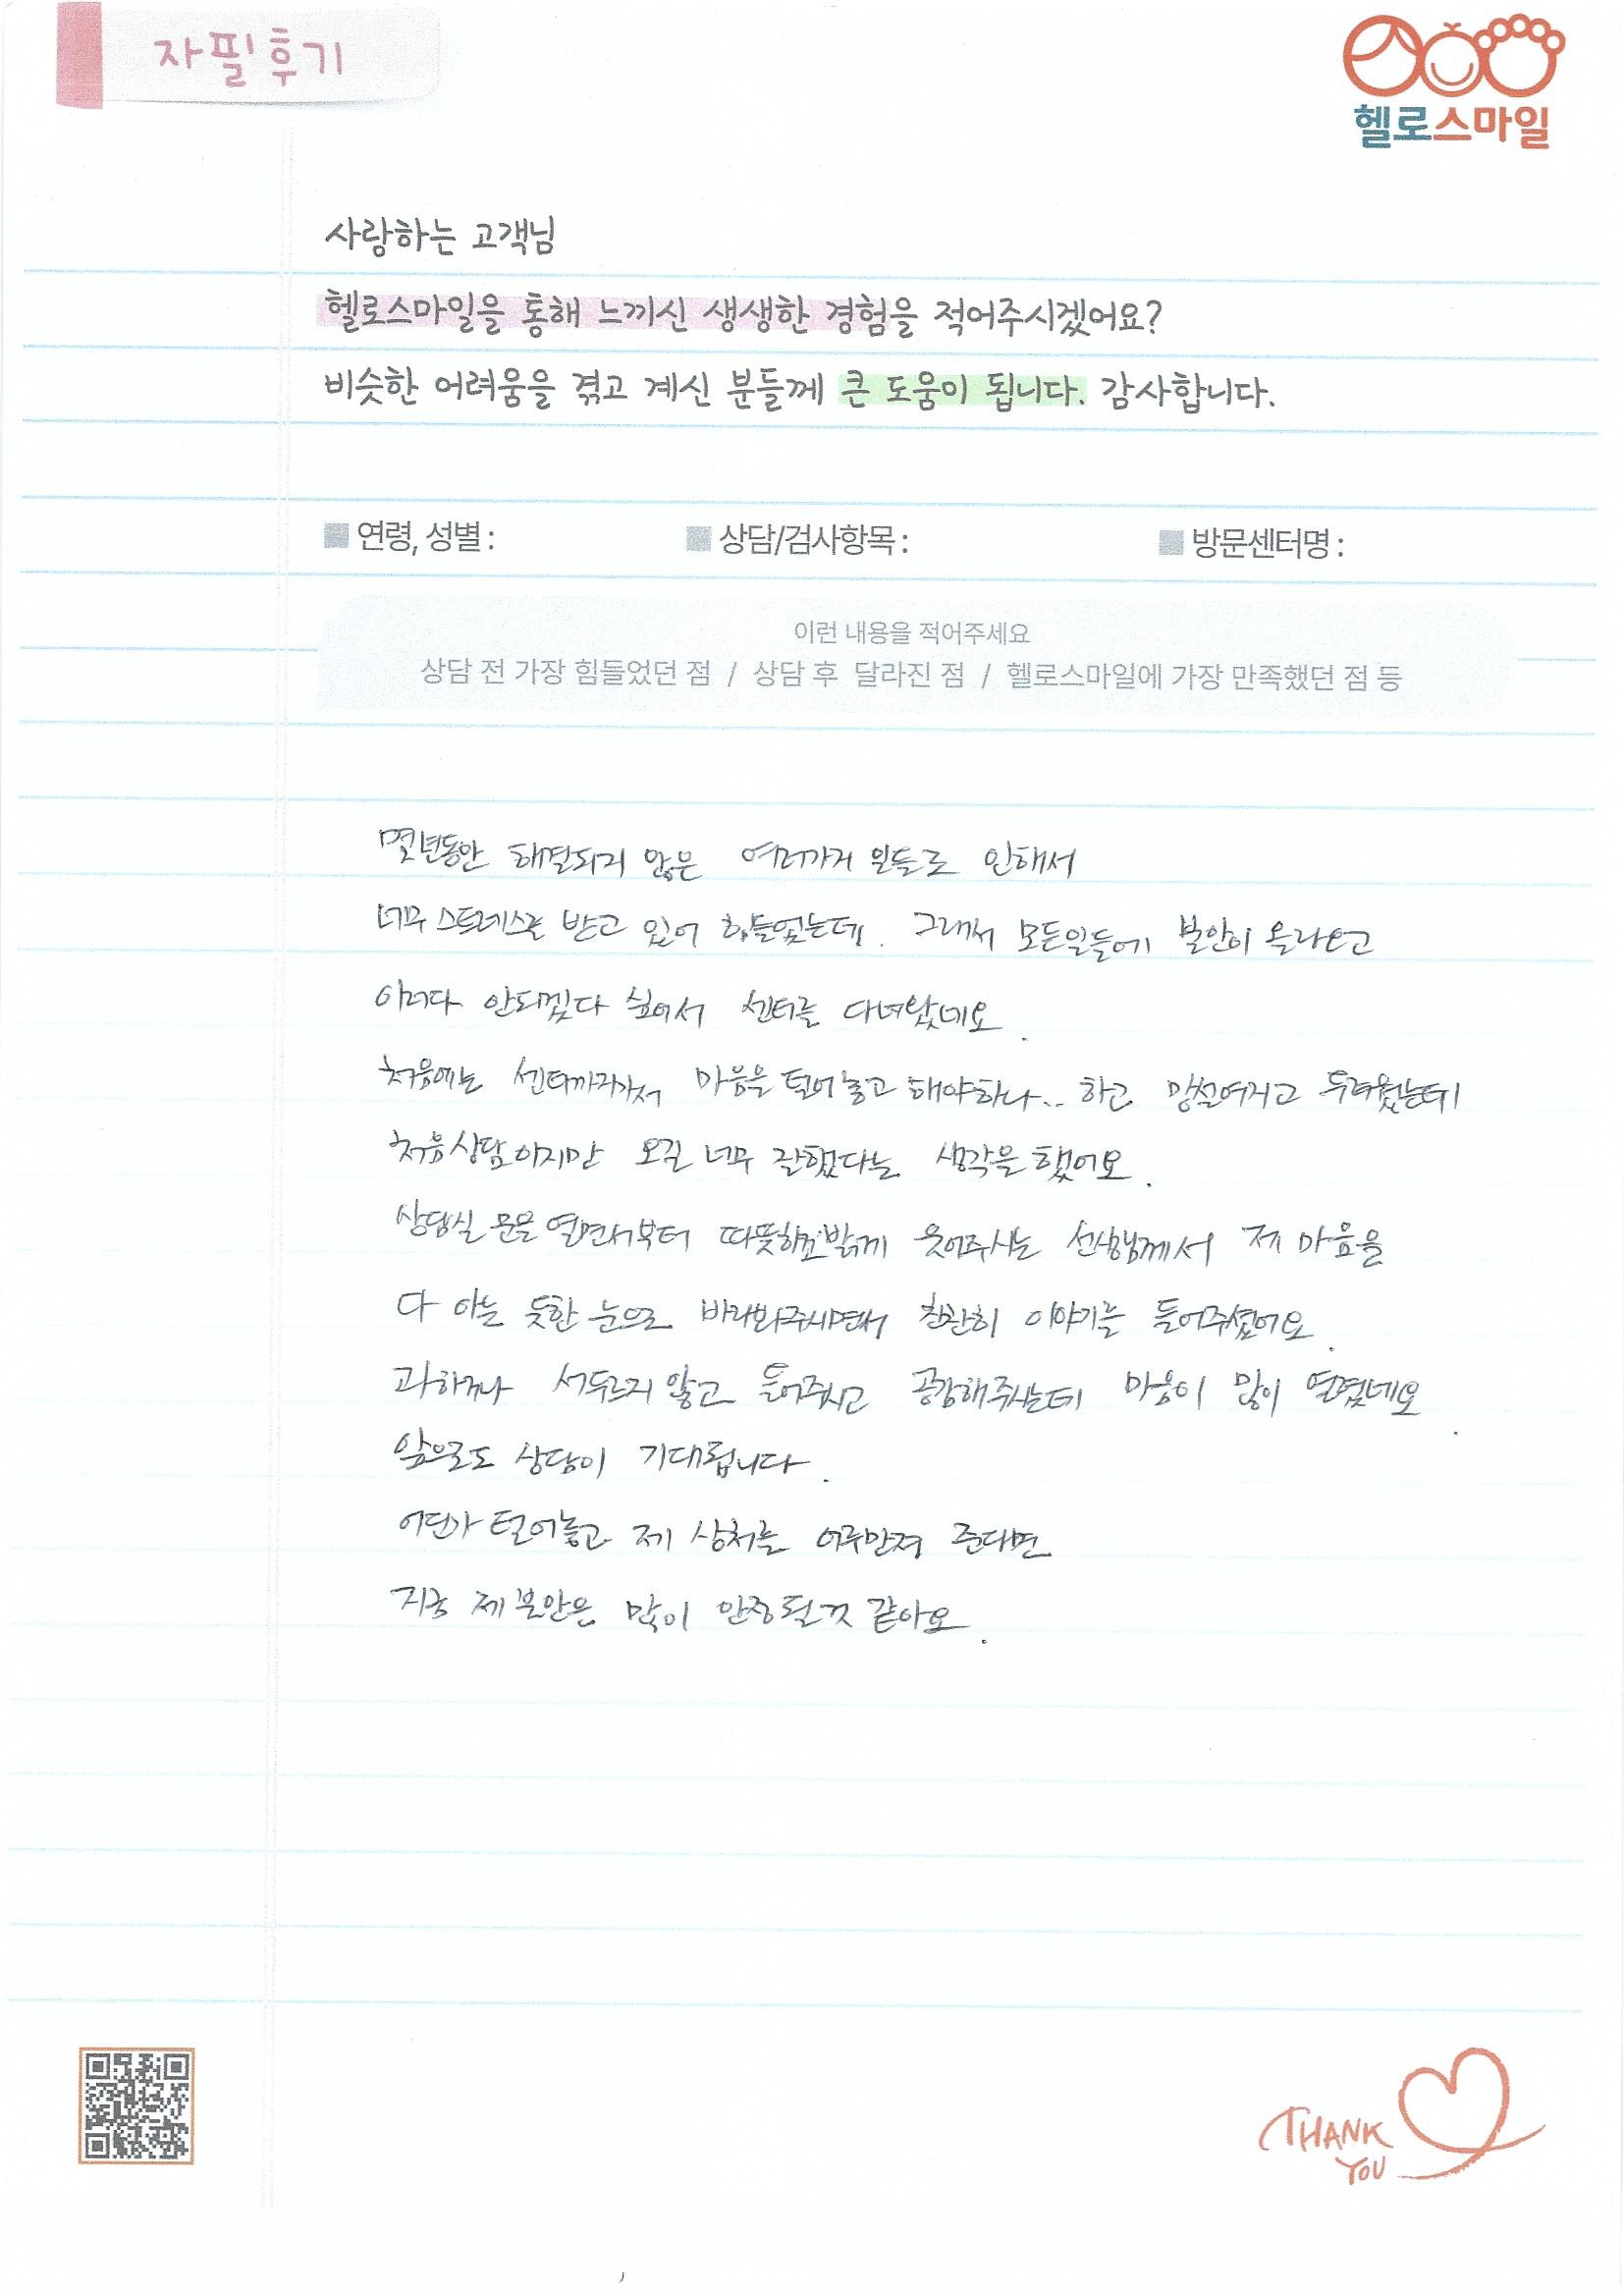 자필후기
헬로스마일
사랑하는 고객님
헬로스마일을 통해 느끼신 생생한 경험을 적어주시겠어요?
비슷한 어려움을 겪고 계신 분들께 큰 도움이 됩니다. 감사합니다.
■ 연령, 성별 : ■ 상담/검사항목 : ■ 방문센터명 :
이런 내용을 적어주세요
상담 전 가장 힘들었던 점 / 상담 후 달라진 점 / 헬로스마일에 가장 만족했던 점 등
몇년동안 해결되지 않은 여러가지 일들로 인해서
너무 스트레스를 받고 있어 힘들었는데. 그래서 모든일들에 불안이 올라오고
이러다 안되겠다 싶어서 센터를 다녀왔네요.
처음에는 센터까지가서 마음을 털어놓고 해야하나.. 하고 망설여지고 두려웠는데
처음상담이지만 오길 너무 잘했다는 생각을 했어요.
상담실 문을 열면서부터 따뜻하고 밝게 웃어주시는 선생님께서 제 마음을
다 아는 듯한 눈으로 바라봐주시면서 찬찬히 이야기를 들어주셨어요.
과하거나 서두르지 않고 들어주시고 공감해주시는데 마음이 많이 열렸네요.
앞으로도 상담이 기대됩니다.
털어놓고 제 상처를 어루만져 준다면
지금 제 불안은 많이 안정될것 같아요.
THANK
YOU